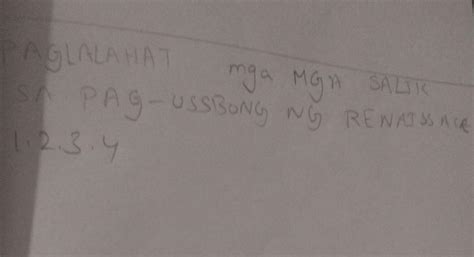 PAGLALAHAT mga MGA SALIK
SA PAG-USSBONG NG RENAISSACE
1.2.3.4